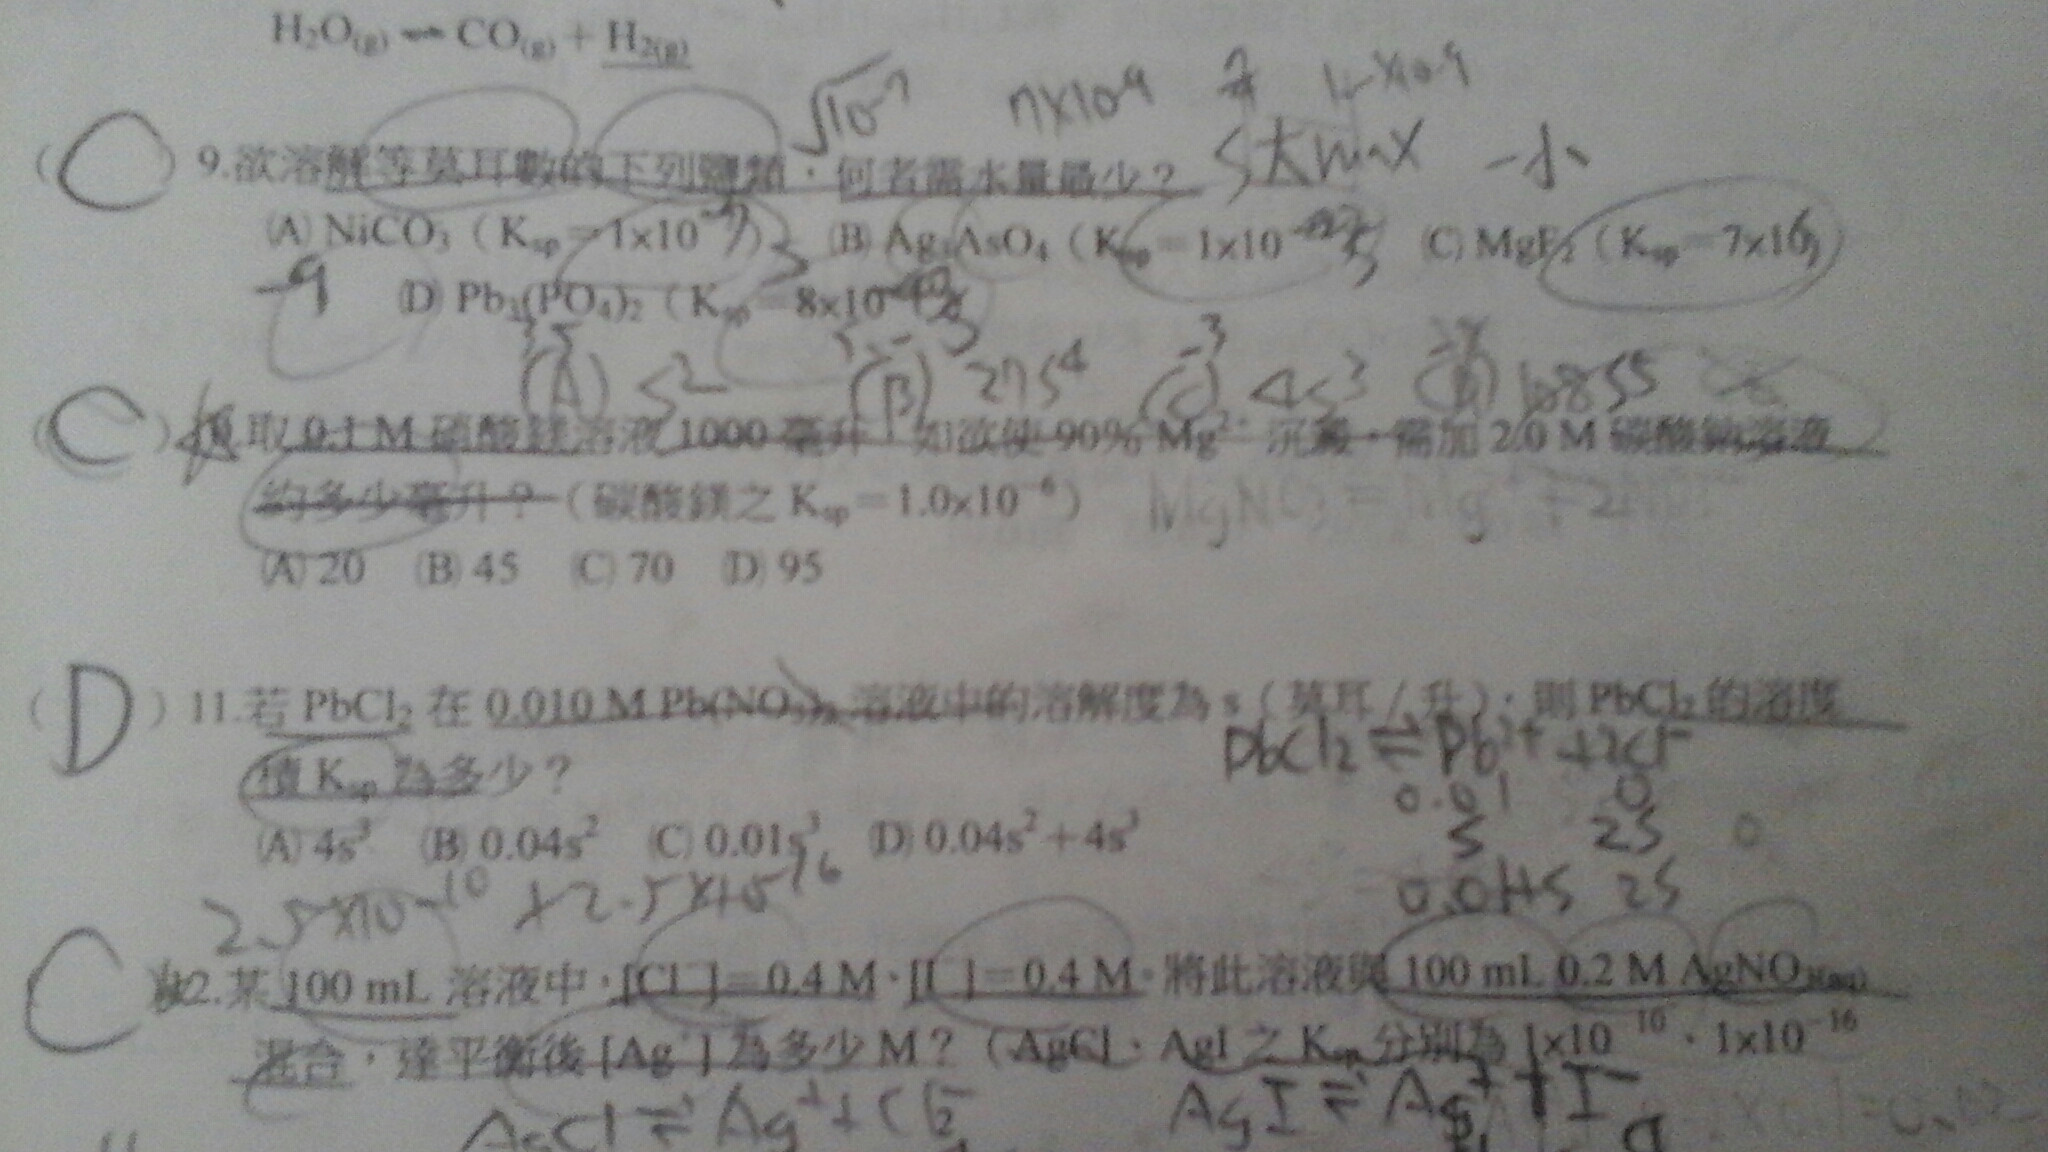 H₂O(g) ⇌ CO(g) + H₂(g)
√10⁻⁷ 7x10⁻⁹
( C ) 9.欲溶解等莫耳數的下列鹽類，何者需水量最少？ S大max
(A) NiCO₃（Ksp＝1x10 (B) Ag₃AsO₄（Ksp＝1x10 (C) MgF₂（Ksp＝7x10
-9 (D) Pb₃(PO₄)₂（Ksp＝8x10
(A) S² (B) 27S⁴ (C) 4S³ (D) 108S⁵
( C ) 取 0.1 M 硝酸鎂溶液 1000 毫升，如欲使 90% Mg²⁺ 沉澱，需加 2.0 M 碳酸鈉溶液
約多少毫升？（碳酸鎂之 Ksp＝1.0x10⁻⁶）
(A) 20 (B) 45 (C) 70 (D) 95
( D ) 11.若 PbCl₂ 在 0.010 M Pb(NO₃)₂ 溶液中的溶解度為 s（莫耳／升），則 PbCl₂ 的溶度
PbCl₂ ⇌ Pb²⁺ + 2Cl⁻
積 Ksp 為多少？
0.01 0
(A) 4s³ (B) 0.04s² (C) 0.01s³ (D) 0.04s²＋4s³
S 2S
0.01+S 2S
2.5x10⁻¹⁰ +2.5x10⁻¹⁶
C 12.某 100 mL 溶液中，[Cl⁻]＝0.4 M，[I⁻]＝0.4 M，將此溶液與 100 mL 0.2 M AgNO₃(aq)
混合，達平衡後 [Ag⁺] 為多少 M？（AgCl、AgI 之 Ksp 分別為 1x10⁻¹⁰、1x10⁻¹⁶
AgCl ⇌ Ag⁺ + Cl⁻ AgI ⇌ Ag⁺ + I⁻